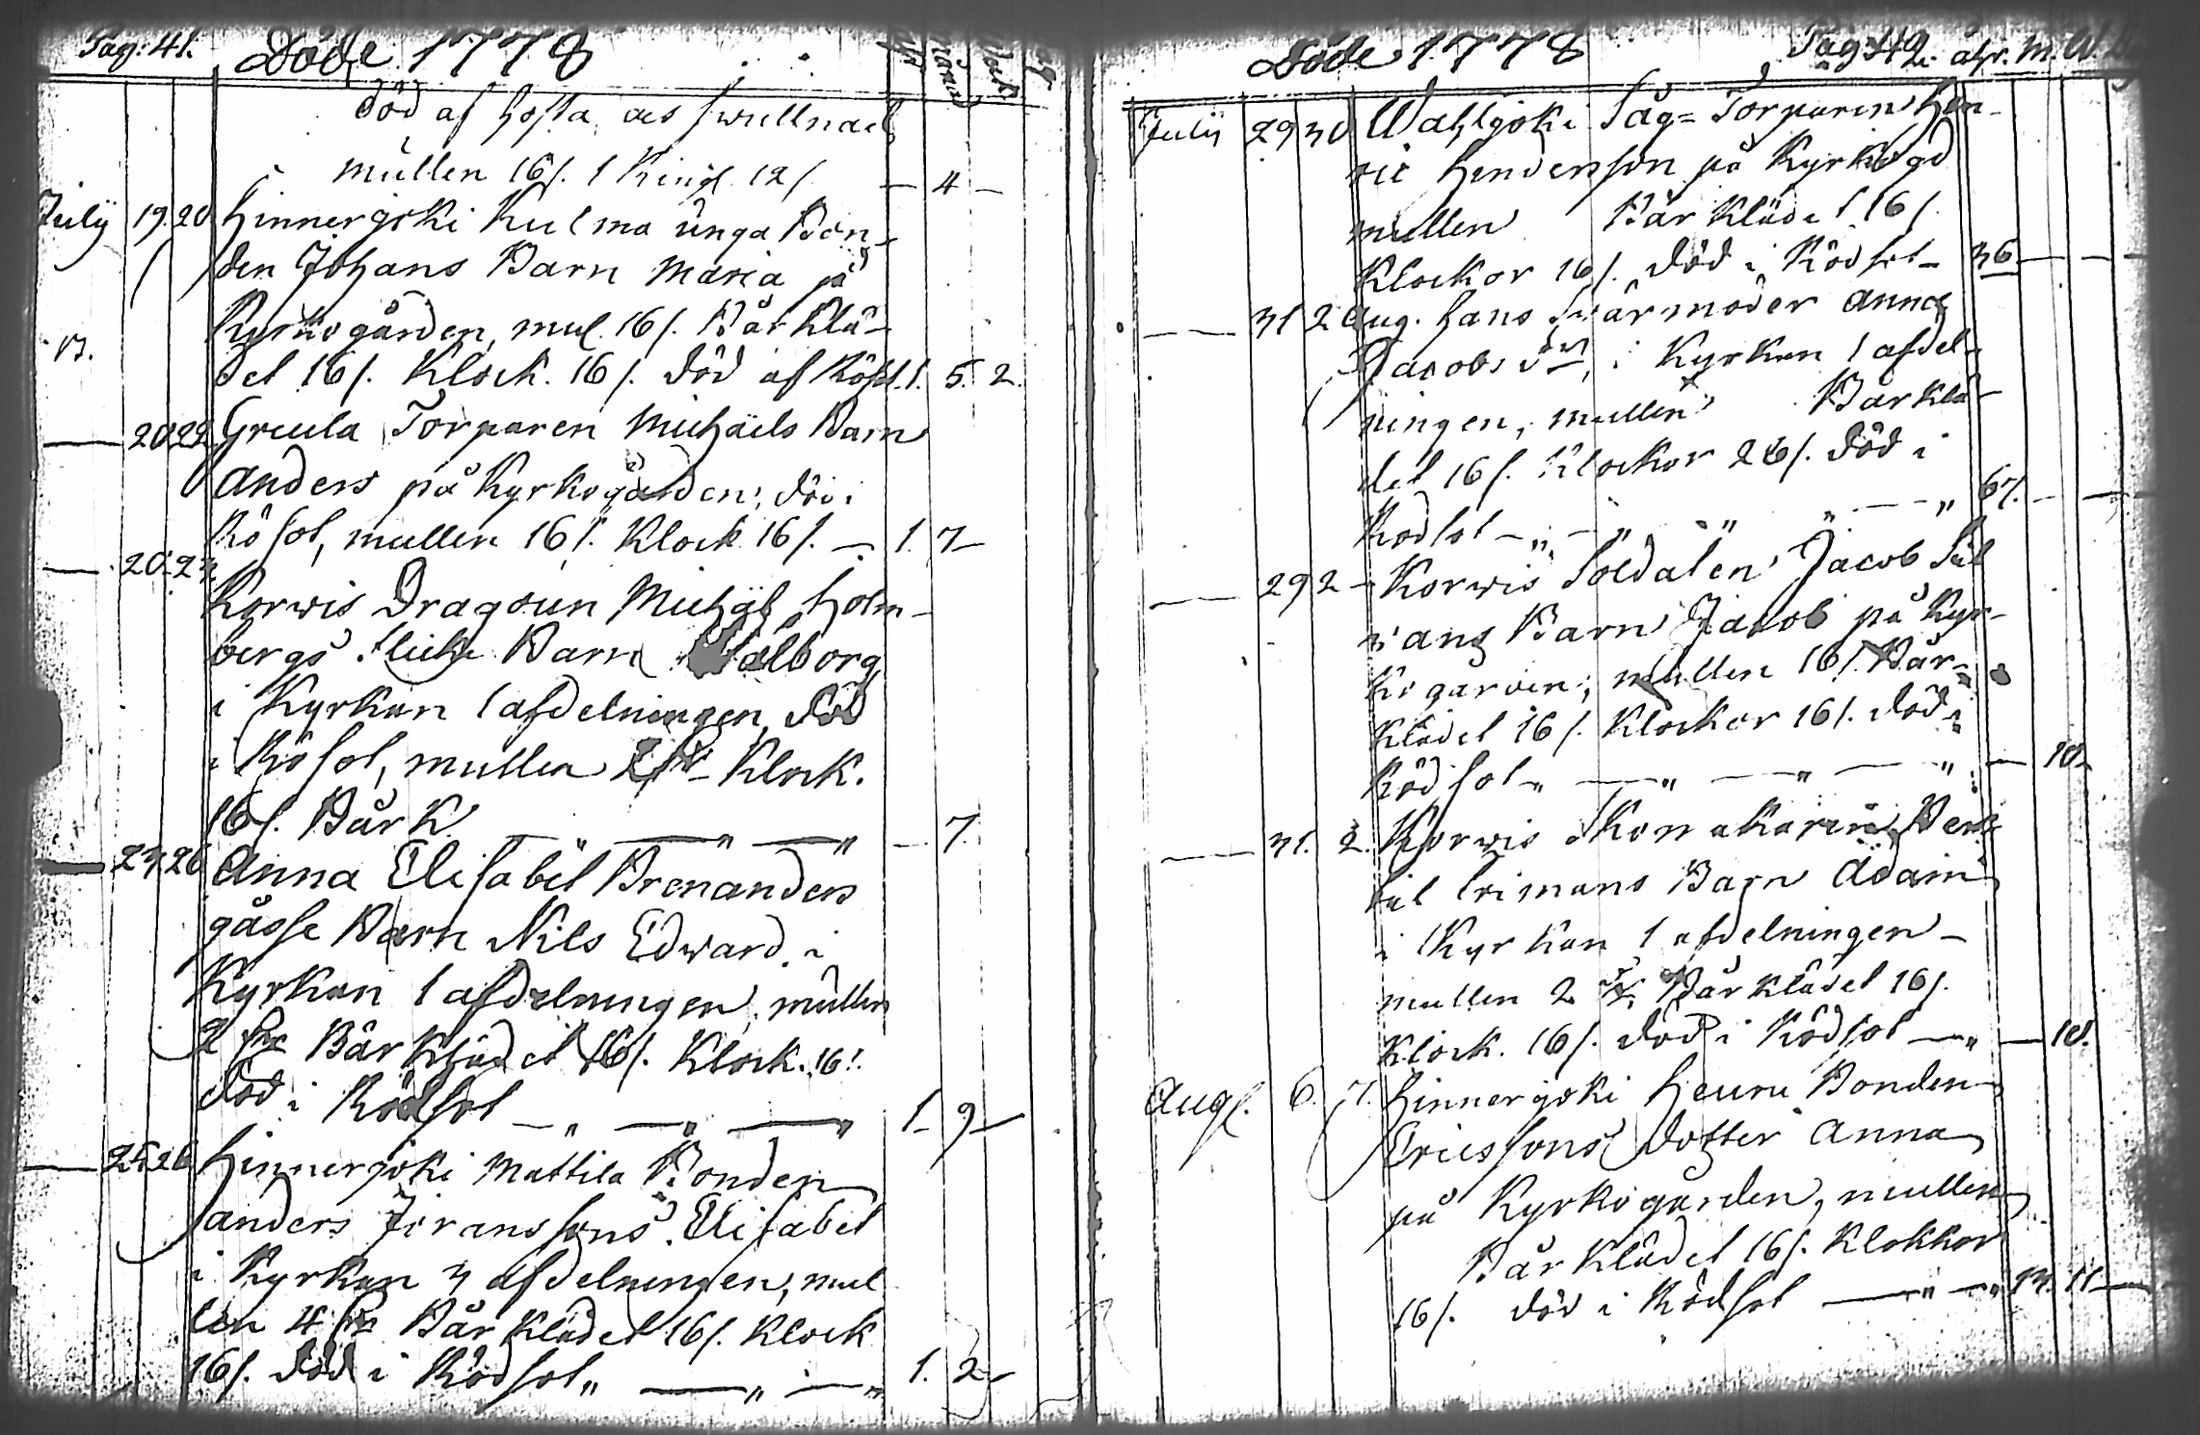 Pag: 41. Döde 1778
död af hosta och swullnad
mullen 16/. 1 Ringl. 12/. — 4 —
Julij 19. 20 Hinnerjoki Kulma unga Bon-
den Johans Barn Maria på
Kyrkogården, mul. 16/. Bårklä-
det 16/. Klock. 16/. död af Rösot. 1. 5. 2.
— 20 22 Greula Torparen Michäels Barn
Anders på Kyrkogården, död i
Rösot, mullen 16/. Klock 16/. — 1. 7 —
— 20. 23 Korwis Dragoun Michäl Holm-
bergs flicke Barn Walborg
i Kyrkan 1 afdelningen, död
i Rösot, mullen Klock.
16/. Bår K — " — " — " — 7.
— 23 26 Anna Elisabet Brenanders
gåsse Barn Nils Edward i
Kyrkan 1 afdelningen, mullen
2 Bårklädet 16/. Klock. 16/.
död i Rödsot — " — " — " 1 — 9 —
— 25 26 Hinnerjoki Mattila Bonden
Anders Jöranssons Elisabet
i Kyrkan 3 afdelningen, mul
len 4 Bårklädet 16/. Klock
16/. död i Rödsot " — " — " 1. 2 —
Döde 1778 Pag: 42. åhr. M.
Julij 29 30 Wahljoki Såg= Torparen Hen-
ric Hendersson på Kyrkogd
mullen Bårkläde 16/.
Klockor 16/. död i Rödsot — 36 — — —
— 31 2 Aug. Hans Swärmoder Anna
Jacobs dr, i Kyrkan 1 afdel-
ningen, mullen Bårklä-
det 16/. Klockor 26/. död i
Rodsot — " — " " " — " 67. — —
— 29 2 — Korwis Soldaten Jacob Sil
wans Barn Jacob på Kyr-
kogården, mullen 16/. Bår-
klädet 16/. Klockor 16/. död i
Rödsot " — " — " — " — 10.
— 31. 2. Korwis Skomakaren Ben
Crimans Barn Adam
i Kyrkan 1 afdelningen —
mullen 2 Bårklädet 16/.
Klock. 16/. död i Rödsot — " — 10.
Aug. 6. 7. Hinnerjoki Heuru Bonden
Ericssons dotter Anna
på Kyrkogården, mullen
Bårklädet 16/. Klokkor
16/. död i Rödsot — " — " 13. 11 —